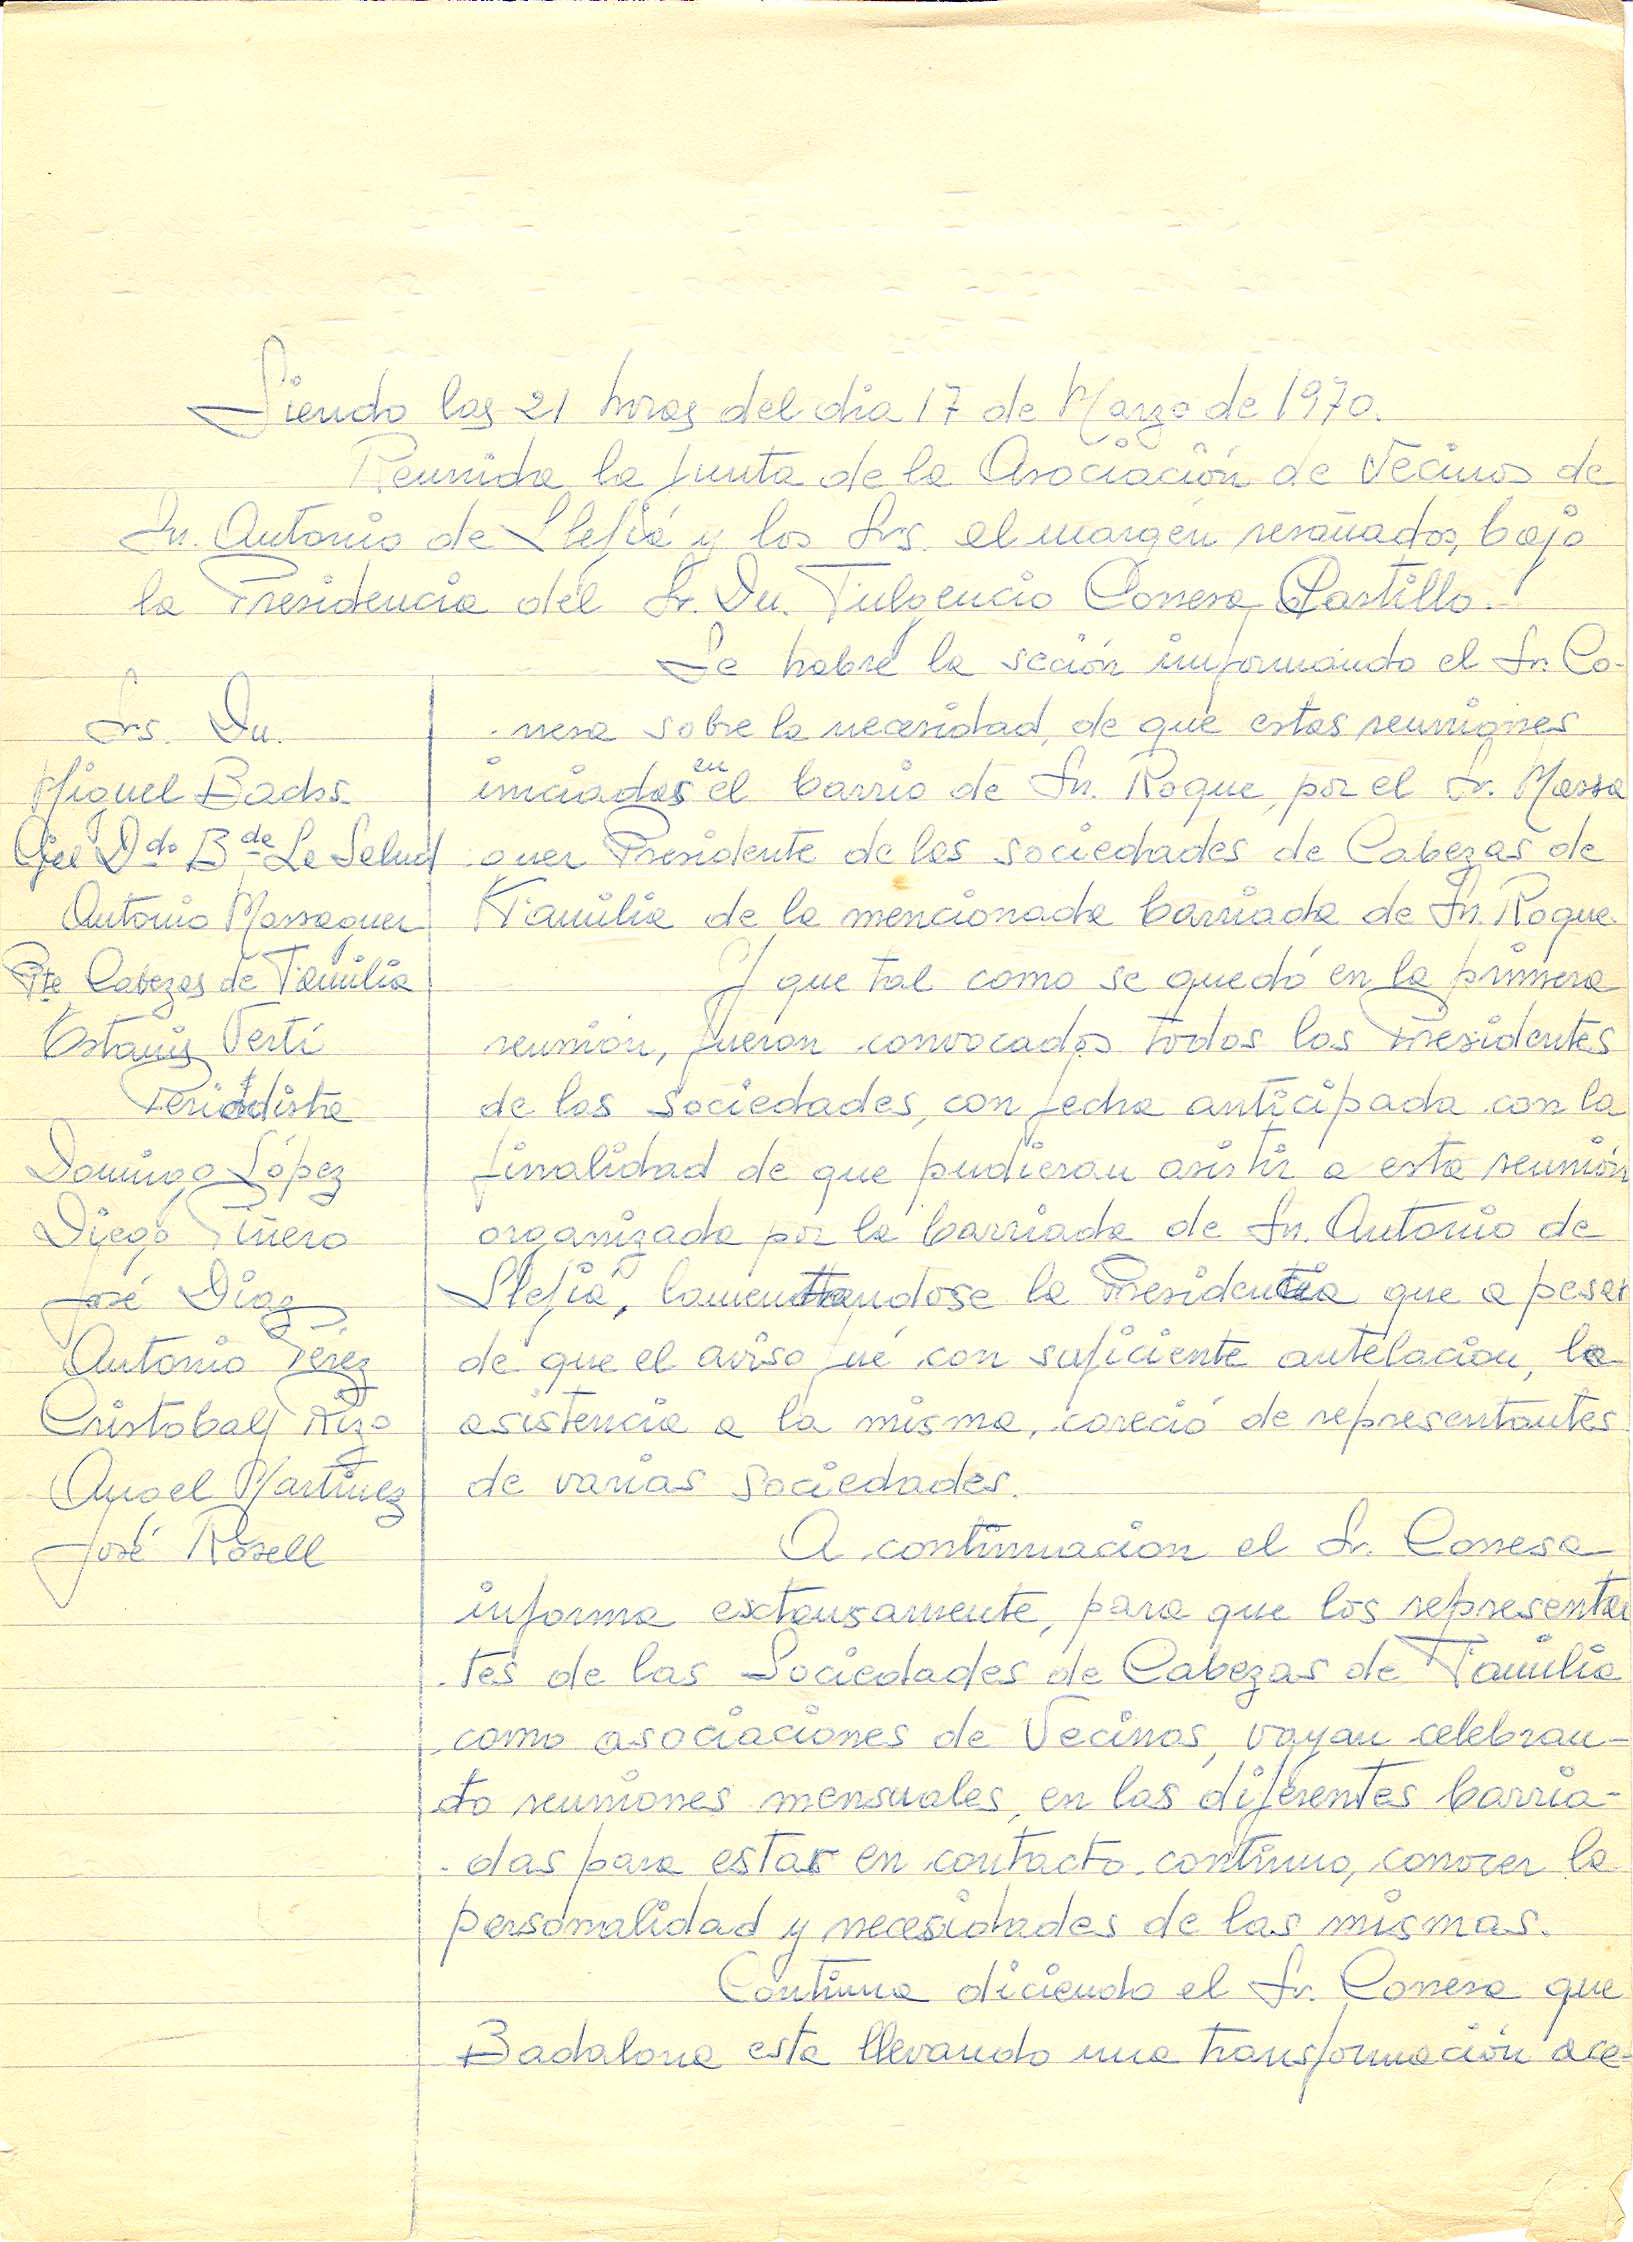 Siendo las 21 horas del dia 17 de Marzo de 1970.
Reunida la Junta de la Asociación de Vecinos de
Sn. Antonio de Llefiá y los Srs. al margen resañados, bajo
la Presidencia del Sr. Dn. Fulgencio Conesa Castillo.
Se habre la seción informando el Sr. Co-
nesa sobre la necesidad, de que estas reuniones
iniciadas en el barrio de Sn. Roque, por el Sr. Massa
guer Presidente de las sociedades de Cabezas de
Familia de la mencionada barriada de Sn. Roque.
Y que tal como se quedó en la primera
reunión, fueron convocados todos los Presidentes
de las Sociedades, con fecha anticipada con la
finalidad de que pudieran asistir a esta reunión
organizada por la barriada de Sn. Antonio de
Llefiá, lamentandose la Presidencia que a pesar
de que el aviso fué con suficiente antelacion, la
asistencia a la misma, careció de representantes
de varias Sociedades.
A continuacion el Sr. Conesa
informa extensamente, para que los representan
tes de las Sociedades de Cabezas de Familia
como asociaciones de Vecinos, vayan celebran-
do reuniones mensuales, en las diferentes barria-
das para estar en contacto continuo, conocer la
personalidad y necesidades de las mismas.
Continua diciendo el Sr. Conesa que
Badalona esta llevando una transformación ace-
Srs. Dn.
Miguel Bachs
Ddo Bde La Salud
Antonio Massaguer
Pte Cabezas de Familia
Estanis Vertí
Periodista
Domingo López
Diego Piñero
José Diaz
Antonio Pérez
Cristobal Rizo
Angel Martinez
José Rosell